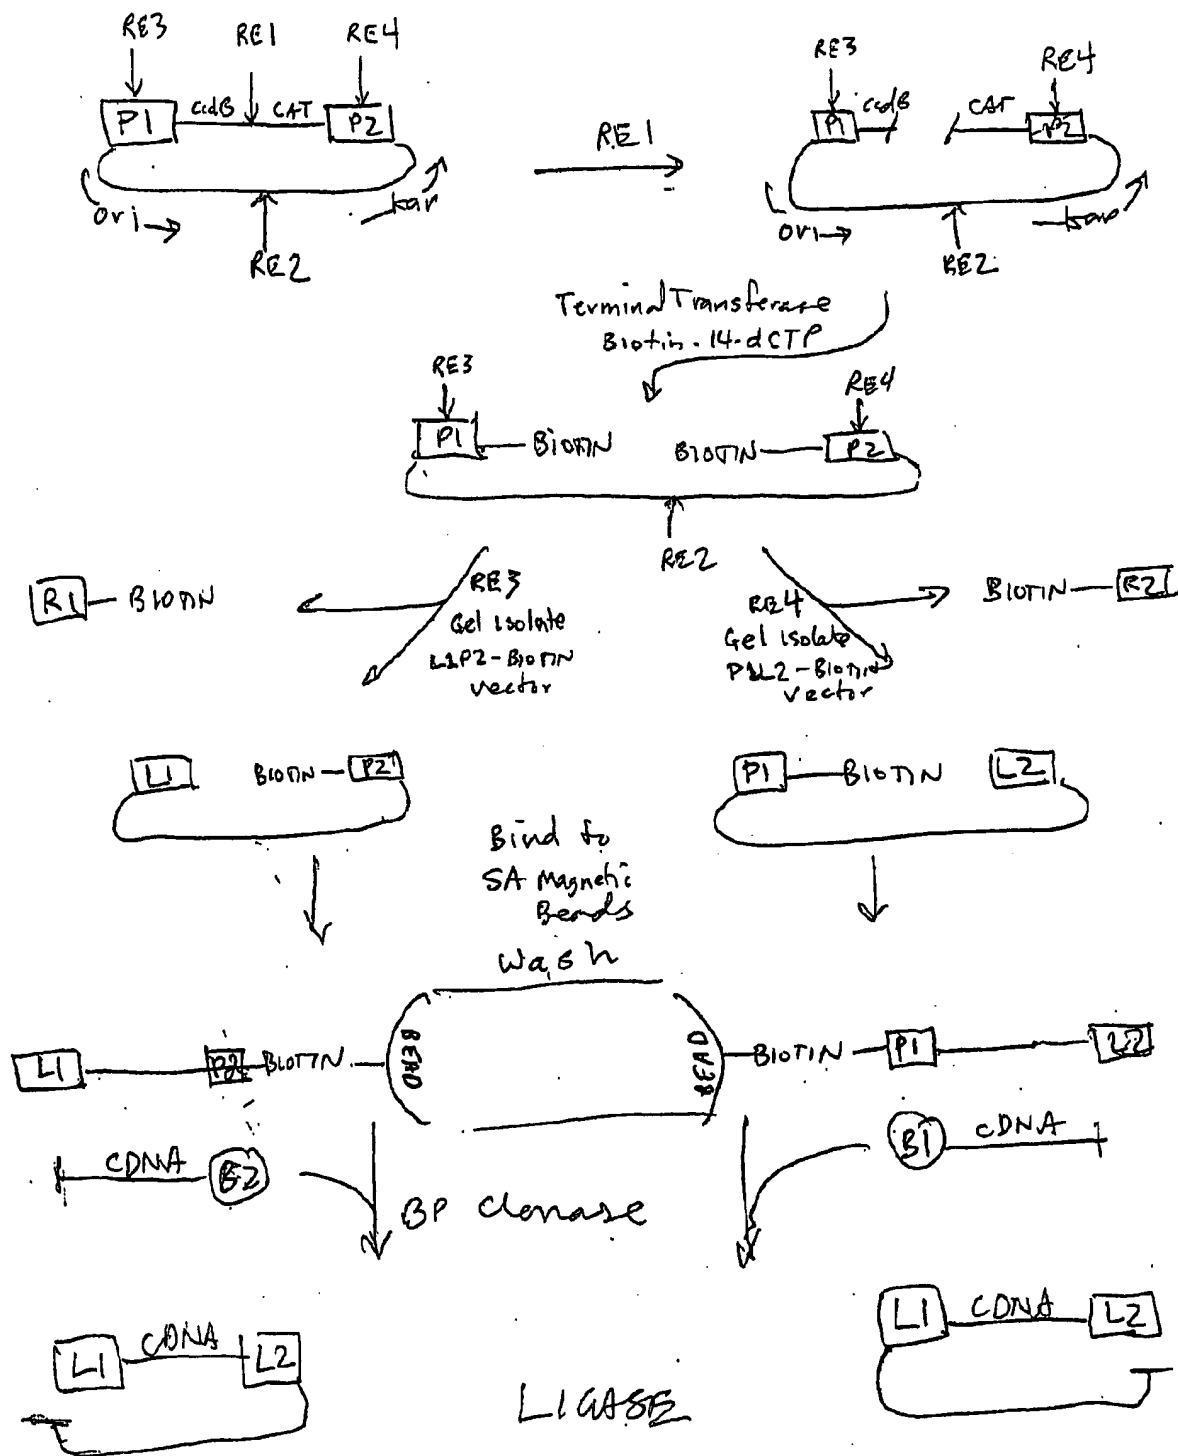 RE3 RE1 RE4
P1 ccdB CAT P2
ori kan
RE2
RE1
RE3 RE4
P1 ccdB CAT P2
ori kan
RE2
Terminal Transferase
Biotin-14-dCTP
RE3 RE4
P1 BIOTIN BIOTIN P2
RE2
R1 BIOTIN
RE3
Gel isolate
L1P2-Biotin
vector
RE4
Gel isolate
P1L2-Biotin
vector
BIOTIN R2
L1 BIOTIN P2
P1 BIOTIN L2
Bind to
SA Magnetic
Beads
Wash
L1 P2 BIOTIN BEAD
BEAD BIOTIN P1 L2
CDNA B2
B1 CDNA
BP Clonase
L1 CDNA L2
L1 CDNA L2
LIGASE